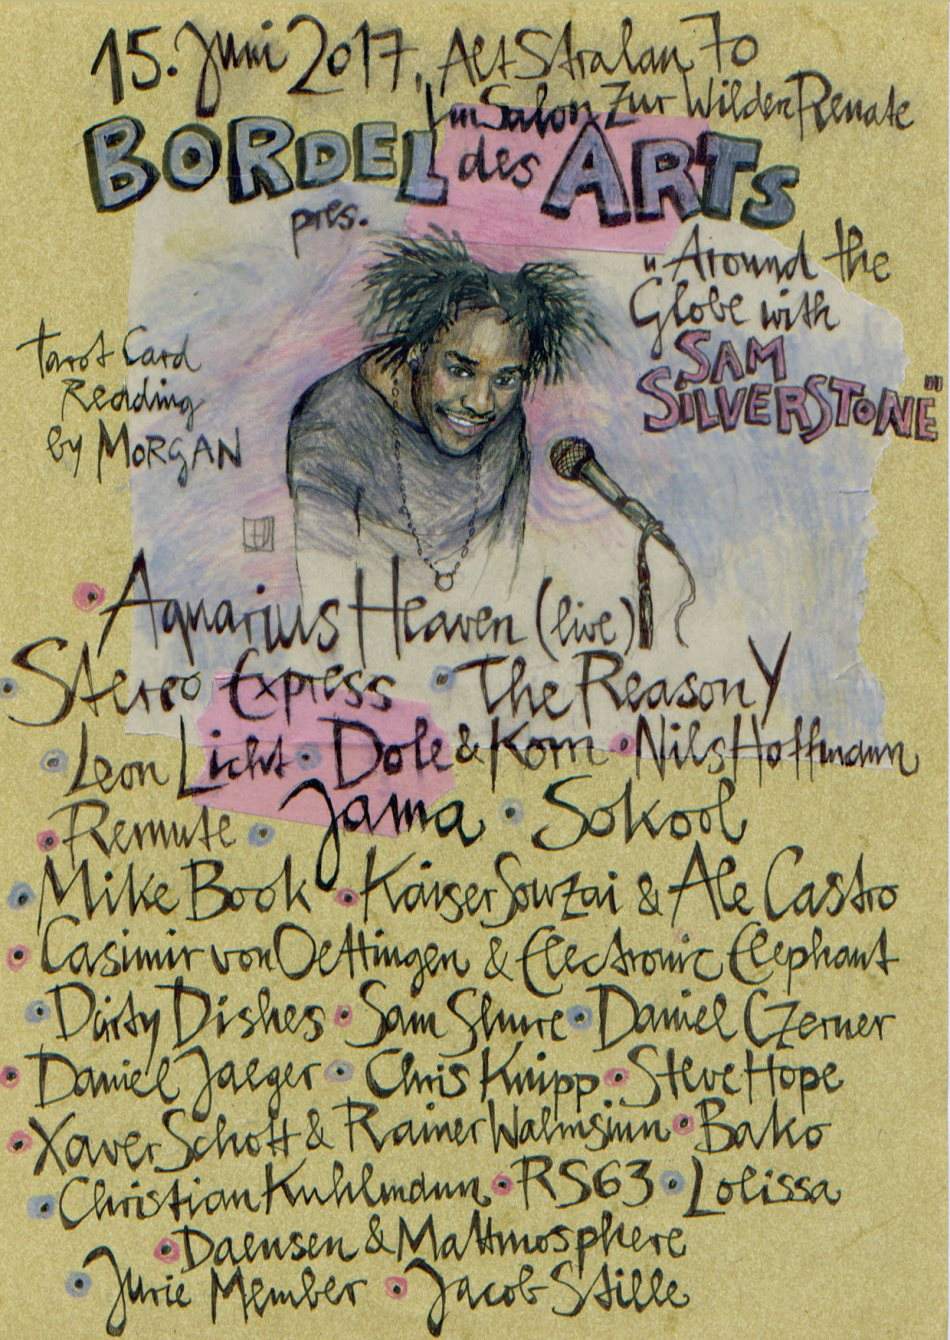 15. Juni 2017, Alt Stralau 70
Im Salon Zur Wilden Renate
BORDEL des ARTS
präs.
"Around the
Globe with
SAM
SILVERSTONE"
Tarot Card
Reading
by MORGAN
• Aquarius Heaven (live)
• Stereo Express • The Reason Y
• Leon Licht • Dole & Kom • Nils Hoffmann
• Remute • Jama • Sokool
• Mike Book • Kaiser Souzai & Ale Castro
• Casimir von Oettingen & Electronic Elephant
• Dirty Dishes • Sam Shure • Daniel Czerner
• Daniel Jaeger • Chris Knipp • Steve Hope
• Xaver Schott & Rainer Walmsinn • Bako
• Christian Kuhlmann • RS63 • Lolissa
• Daensen & Mattmosphere
• Jurie Member • Jacob Stille